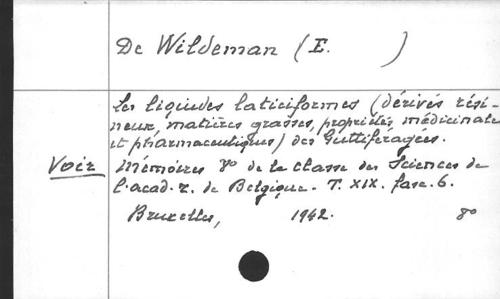 De Wildeman (E. )
Les liquides laticiformes (dérivés rési-
neux, matières grasses, propriétés médicinales
et pharmaceutiques) des Guttiféragées.
Voir Mémoires 8° de la classe des Sciences de
l'acad. r. de Belgique. T. XIX. fasc. 6.
Bruxelles, 1942. 8°